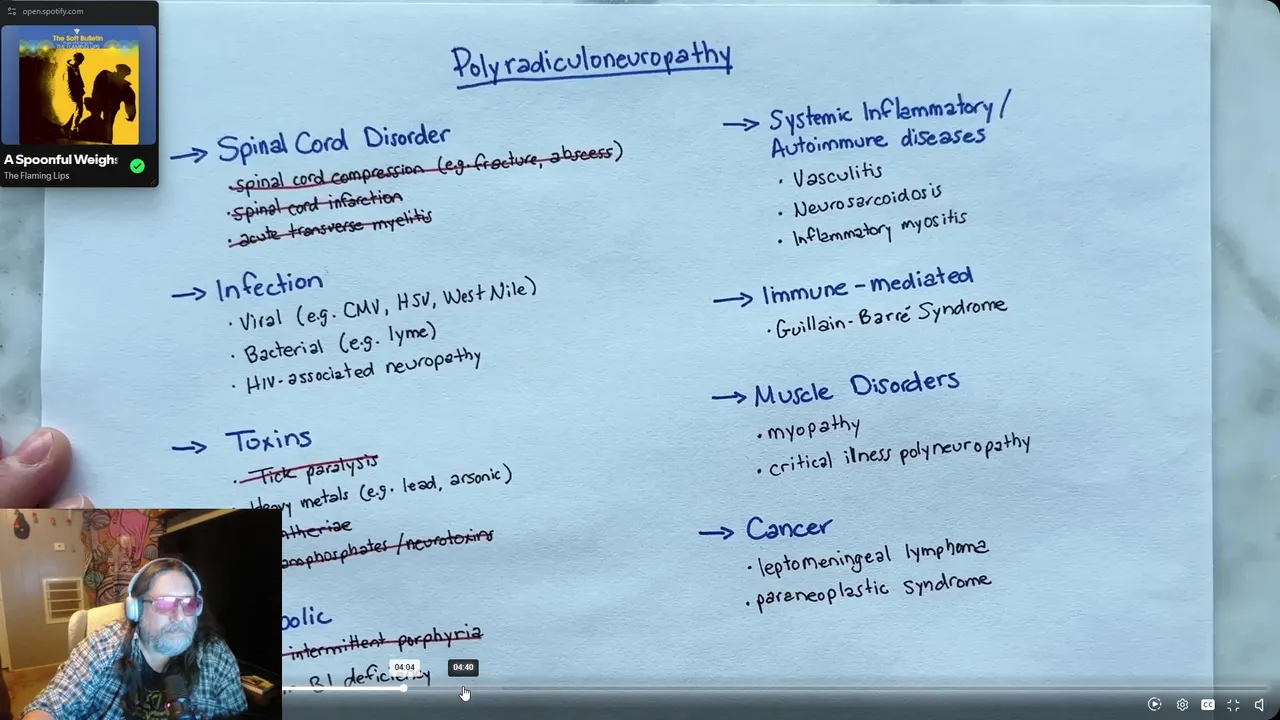 open.spotify.com
The Soft Bulletin
THE FLAMING LIPS
A Spoonful Weighs
The Flaming Lips
Polyradiculoneuropathy
→ Spinal Cord Disorder
· spinal cord compression (e.g. fracture, abscess)
· spinal cord infarction
· acute transverse myelitis
→ Infection
· Viral (e.g. CMV, HSV, West Nile)
· Bacterial (e.g. lyme)
· HIV-associated neuropathy
→ Toxins
· Tick paralysis
Heavy metals (e.g. lead, arsonic)
theriae
anophosphates/neurotoxins
bolic
intermittent porphyria
B1 deficiency
→ Systemic Inflammatory/
Autoimmune diseases
· Vasculitis
· Neurosarcoidosis
· Inflammatory myositis
→ Immune-mediated
· Guillain-Barré Syndrome
→ Muscle Disorders
· myopathy
· critical illness polyneuropathy
→ Cancer
· leptomeningeal lymphoma
· paraneoplastic syndrome
04:04
04:40
CC